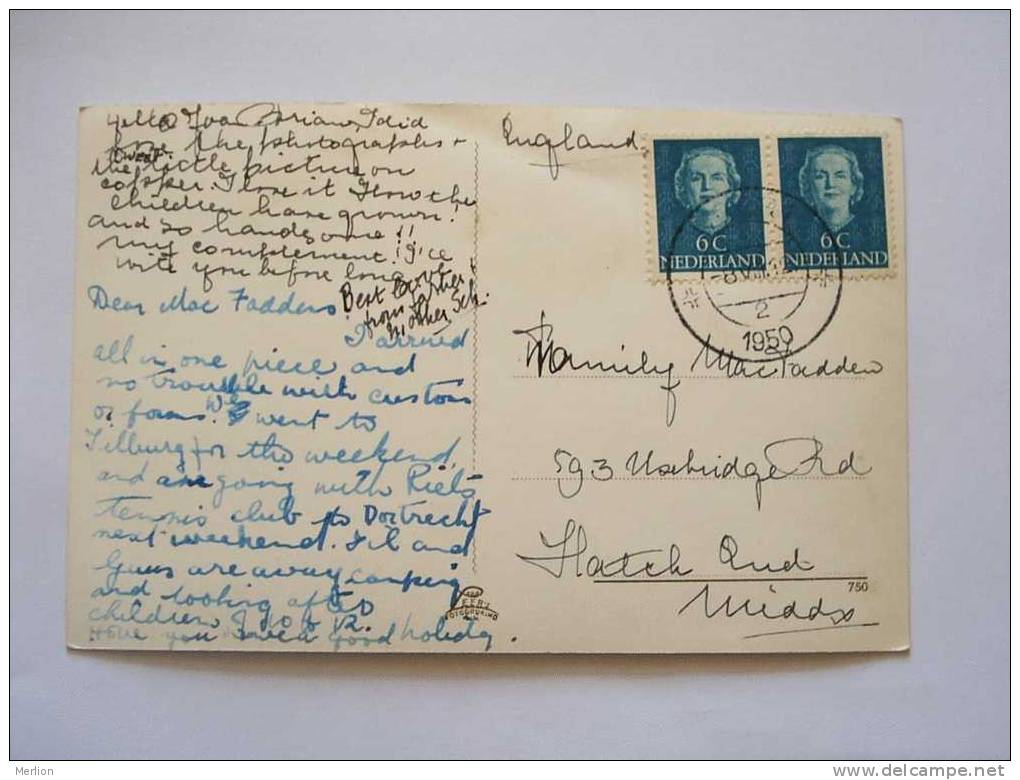 the photographs +
the little picture on
copper. I love it How the
children have grown!
and so handsome!!
my complement! I'ce
write you before long
Best
from father
mother
Dear Mac Fadders
I arrived
all in one piece and
no trouble with customs
or forms. We went to
Tilburg for the weekend,
and are going with Riets
tennis club to Dortrecht
next weekend. Fil and
Guus are away camping
and looking after
children
Have you had a good holiday.
England.
6C
NEDERLAND
6C
NEDERLAND
2
1950
Family MacFadden
593 Uxbridge Rd
Hatch End
Middx
750
Merlion
delcampe.net